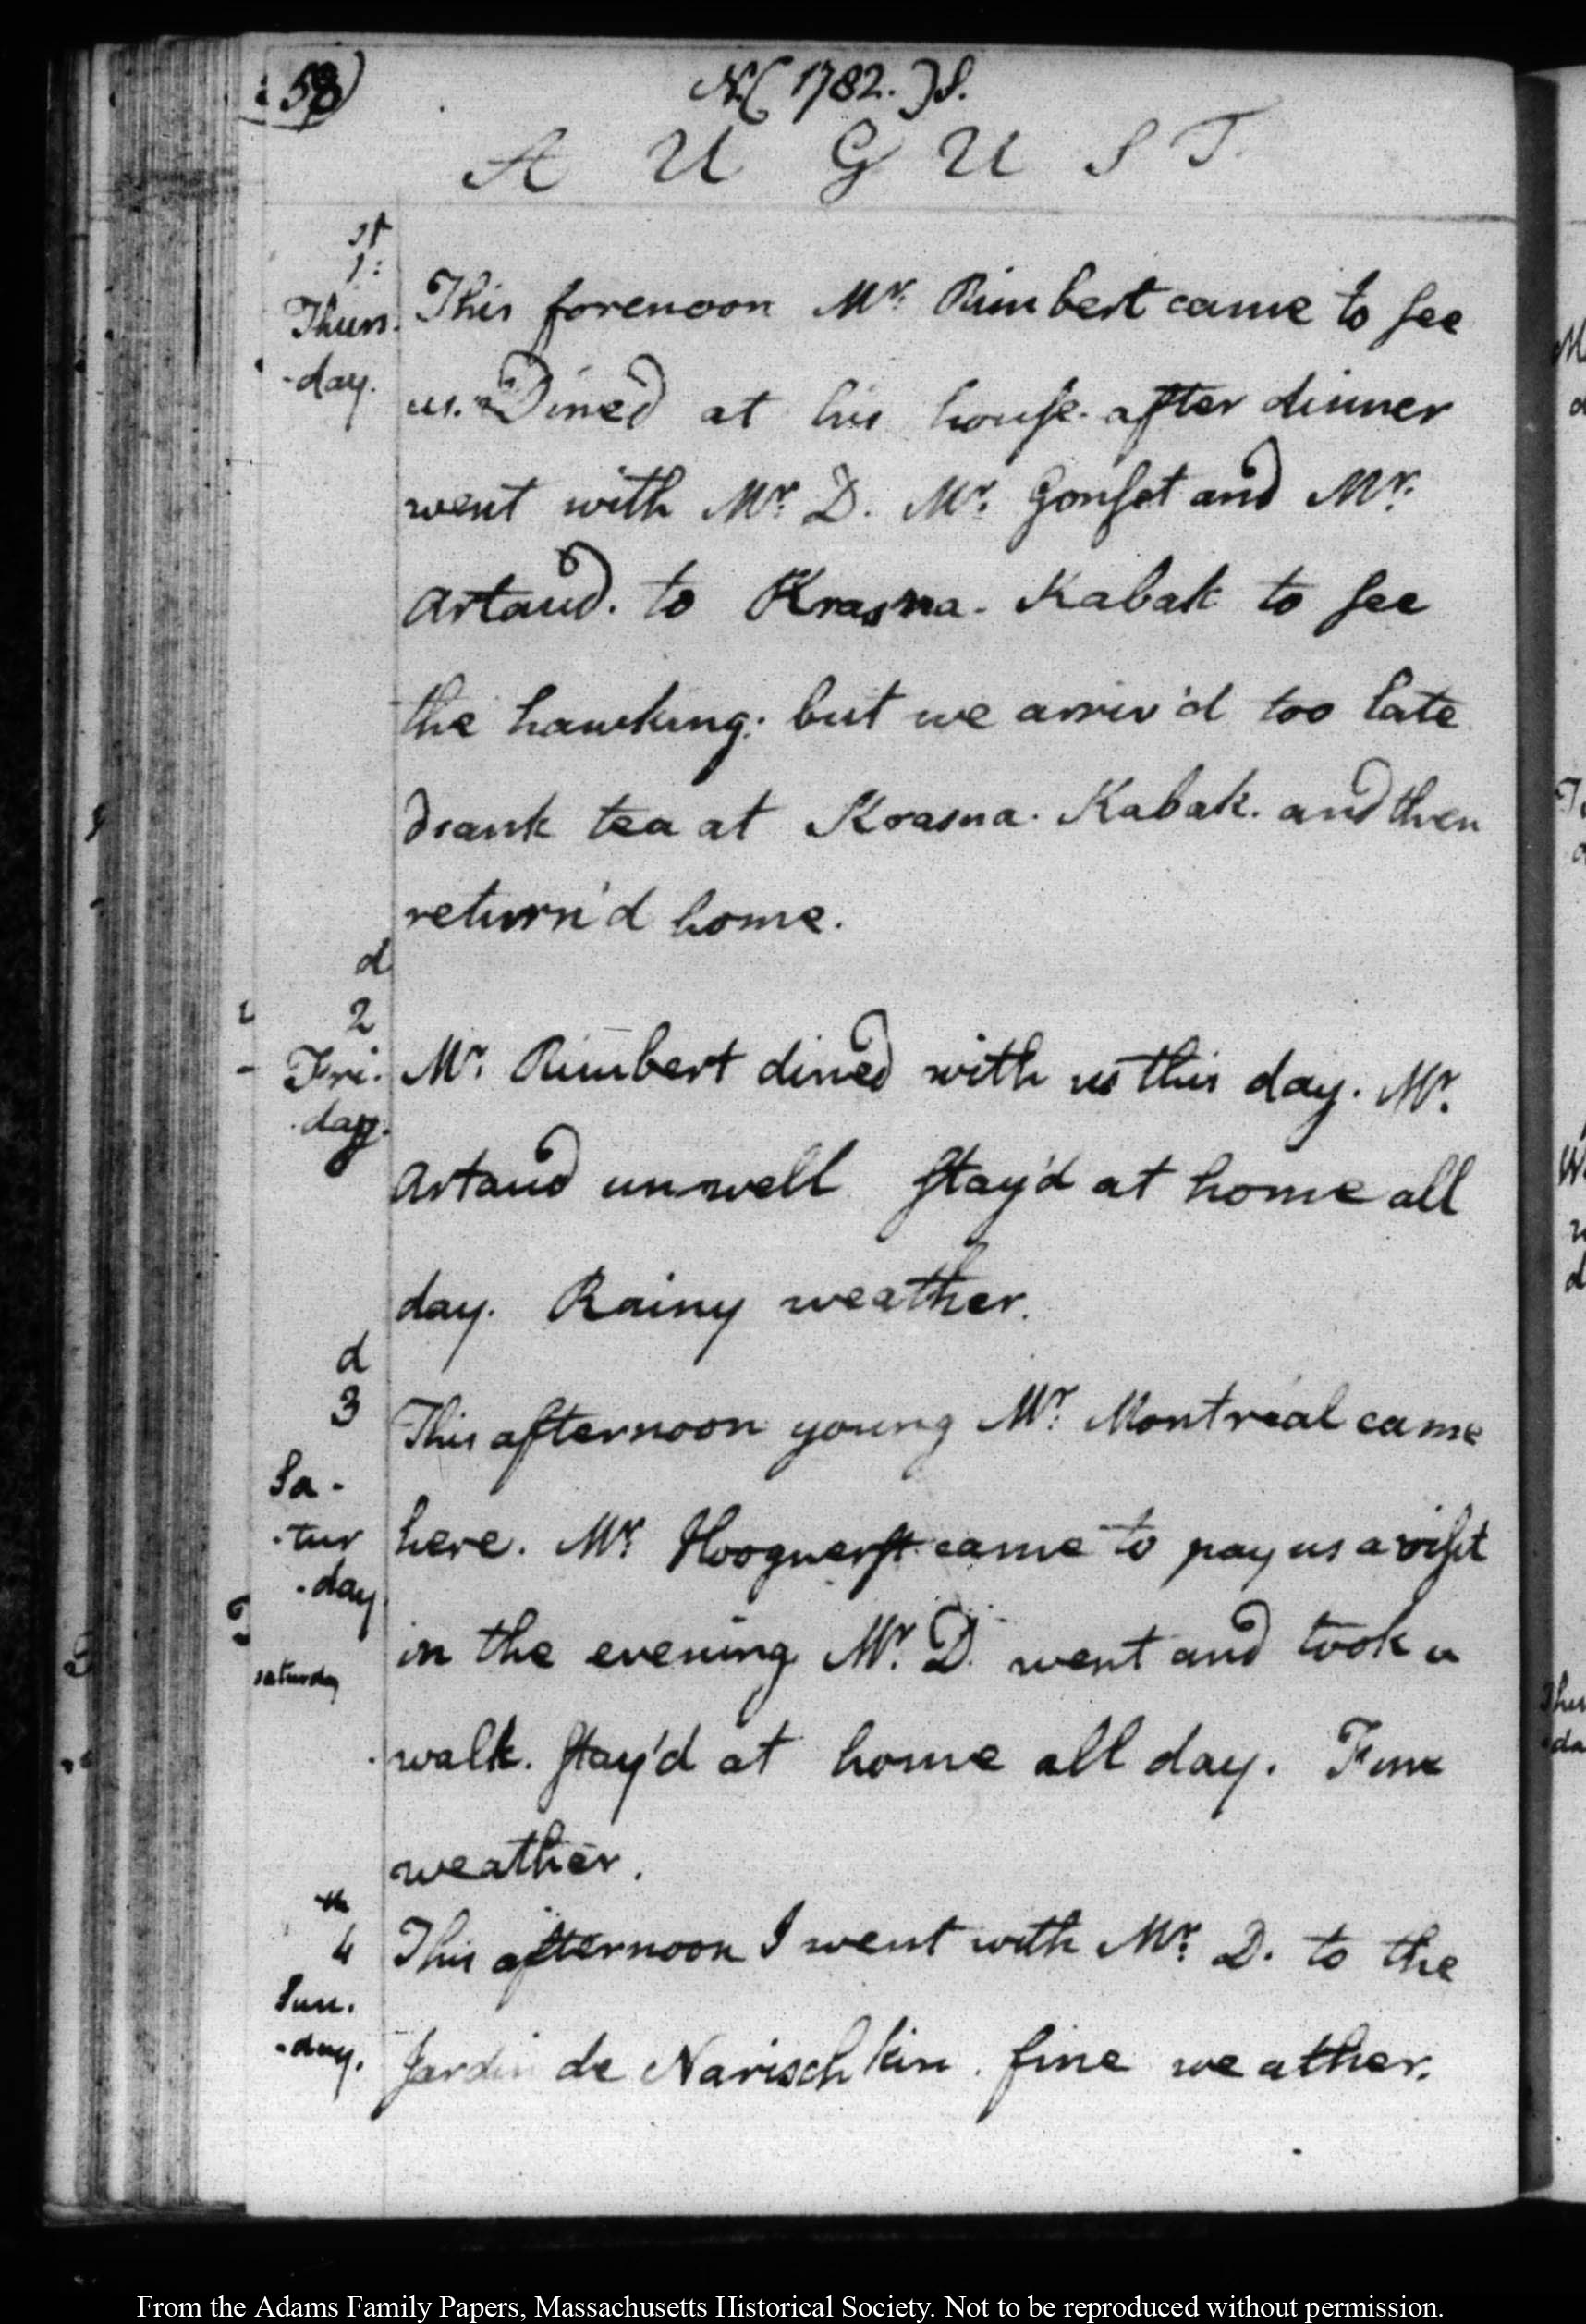 58)
N.( 1782. )S.
A U G U S T.
st
1:
Thurs.
-day.
This forenoon Mr. Rimbert came to see
us. Dined at his house. after dinner
went with Mr. D. Mr. Gonset and Mr.
Artaud. to Krasna-Kabak to see
the hawking: but we arriv'd too late
drank tea at Krasna-Kabak. and then
return'd home.
d
2
Fri.
-day.
Mr. Rimbert dined with us this day. Mr.
Artaud unwell stay'd at home all
day. Rainy weather.
d
3
Sa-
-tur
-day
saturday
This afternoon young Mr. Montréal came
here. Mr. Hoogwerst came to pay us a visit
in the evening Mr. D. went and took a
walk. stay'd at home all day. Fine
weather.
th
4
Sun.
-day.
This afternoon I went with Mr. D. to the
Jardin de Narischkin. fine weather.
From the Adams Family Papers, Massachusetts Historical Society. Not to be reproduced without permission.